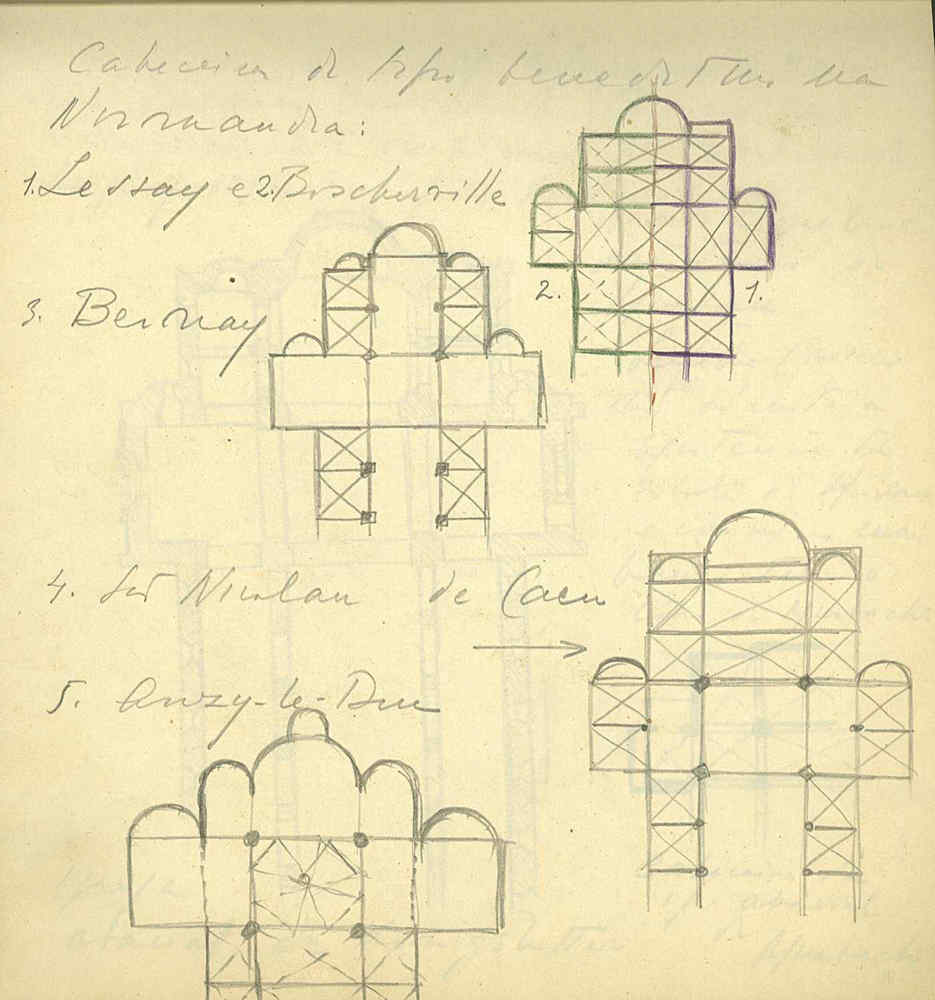 Cabeceira de tipo beneditino na
Normandia:
1. Lessay e 2. Boscherville
3. Bernay
2. 1.
4. São Nicolau de Caen
5. Anzy-le-Duc